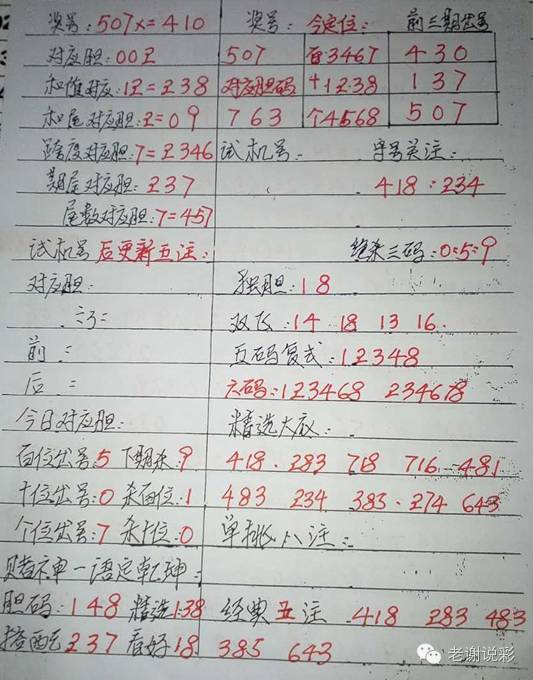 奖号:507x=410 奖号: 今定位: 前三期出号
对应胆:00Z 507 百3467 430
和值对应:12=238 对应胆码 十1238 137
和尾对应胆:2=09 763 个4568 507
跨度对应胆:7=2346 试机号: 字号关注:
期尾对应胆:237 418:234
尾数对应胆:7=457
试机号后更新五注: 绝杀三码:0:5:9
对应胆: 独胆:18
双飞:14 18 13 16.
前 = 五码复式:12348
后 = 六码:123468 234678
今日对应胆: 精选大底:
百位出号:5 下期杀:9 418.283 718 716 481
十位出号:0 杀百位:1 483 234 383.274 643
个位出号:7 杀十位:0 单挑八注:
赌神一语定乾坤:
胆码:148 精选138 经典五注 418 283 483
搭配237 看好18 385 643
老谢说彩